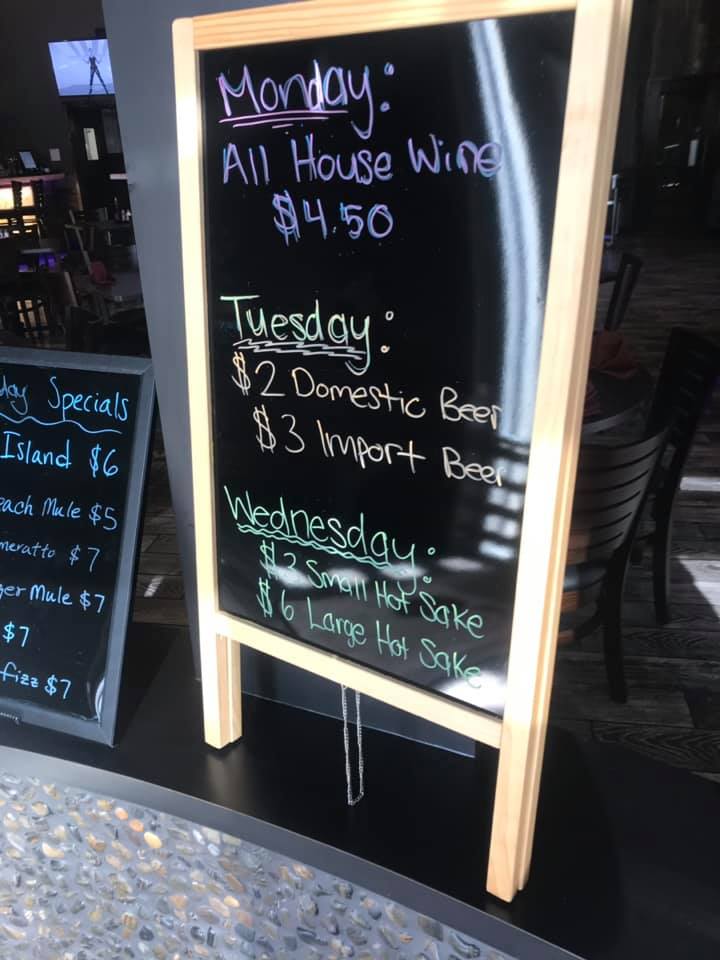 Monday:
All House Wine
$4.50
Tuesday:
$2 Domestic Beer
$3 Import Beer
Wednesday:
$3 Small Hot Sake
$6 Large Hot Sake
Specials
Island $6
Mule $5
$7
Mule $7
$7
fizz $7